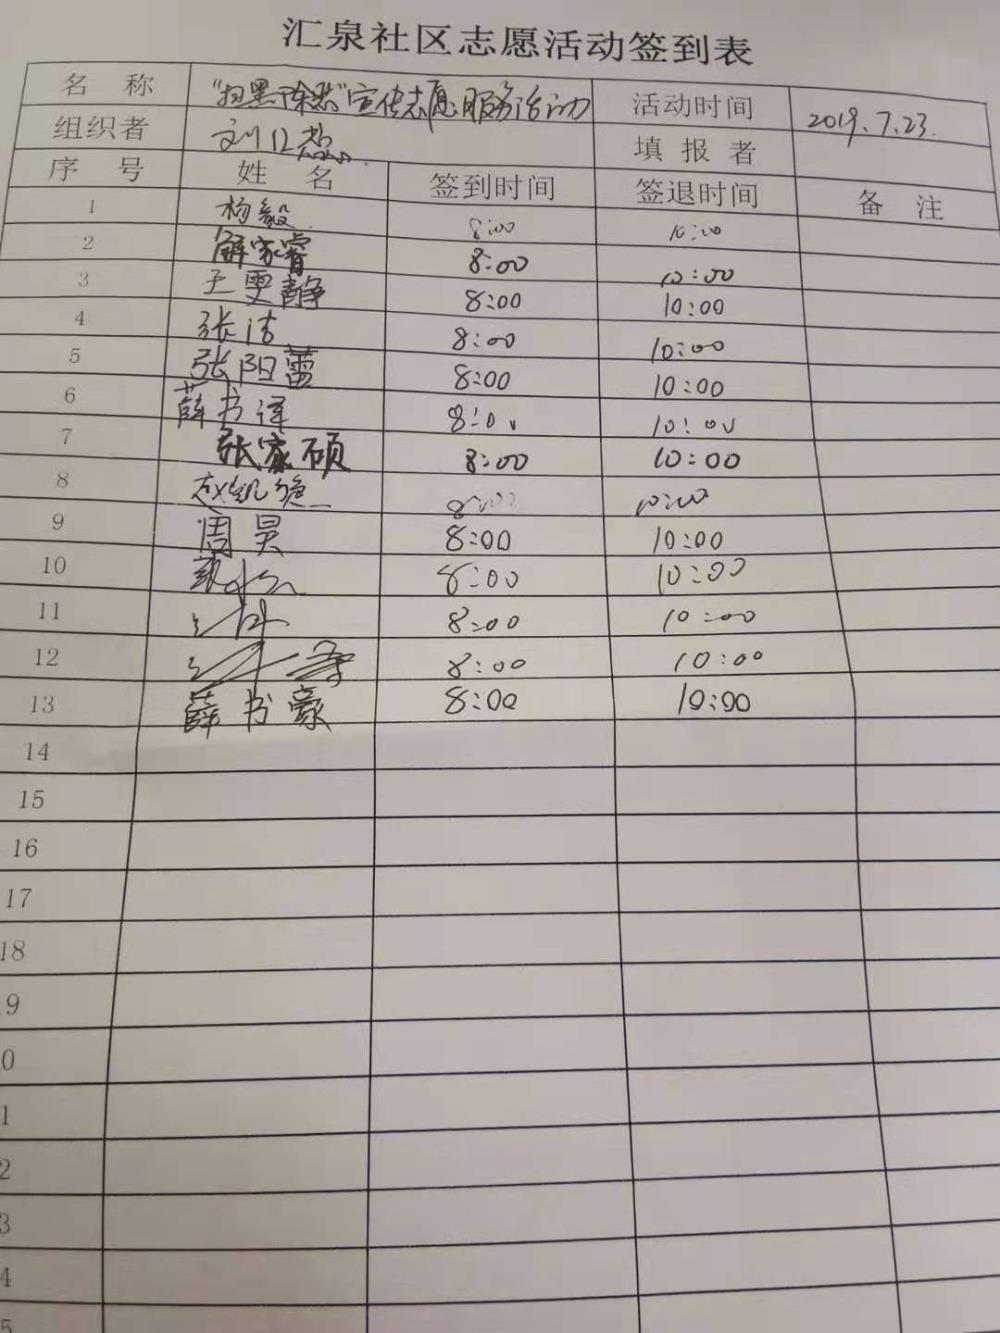 汇泉社区志愿活动签到表
名 称 "扫黑除恶"宣传志愿服务活动 活动时间 2019.7.23.
组织者 填报者
序 号 姓 名 签到时间 签退时间 备 注
1 8:00 10:00
2 解家睿 8:00 10:00
3 王雯静 8:00 10:00
4 张洁 8:00 10:00
5 张阳蕾 8:00 10:00
6 薛书译 8:00 10:00
7 张家硕 8:00 10:00
8 8:00 10:00
9 周昊 8:00 10:00
10 8:00 10:00
11 8:00 10:00
12 8:00 10:00
13 薛书豪 8:00 10:00
14
15
16
17
18
9
0
1
2
3
4
5